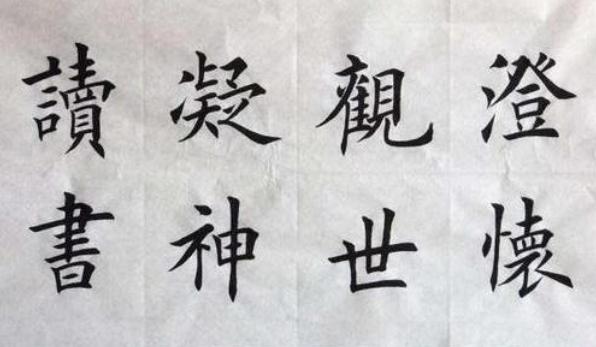 澄懷
觀世
凝神
讀書